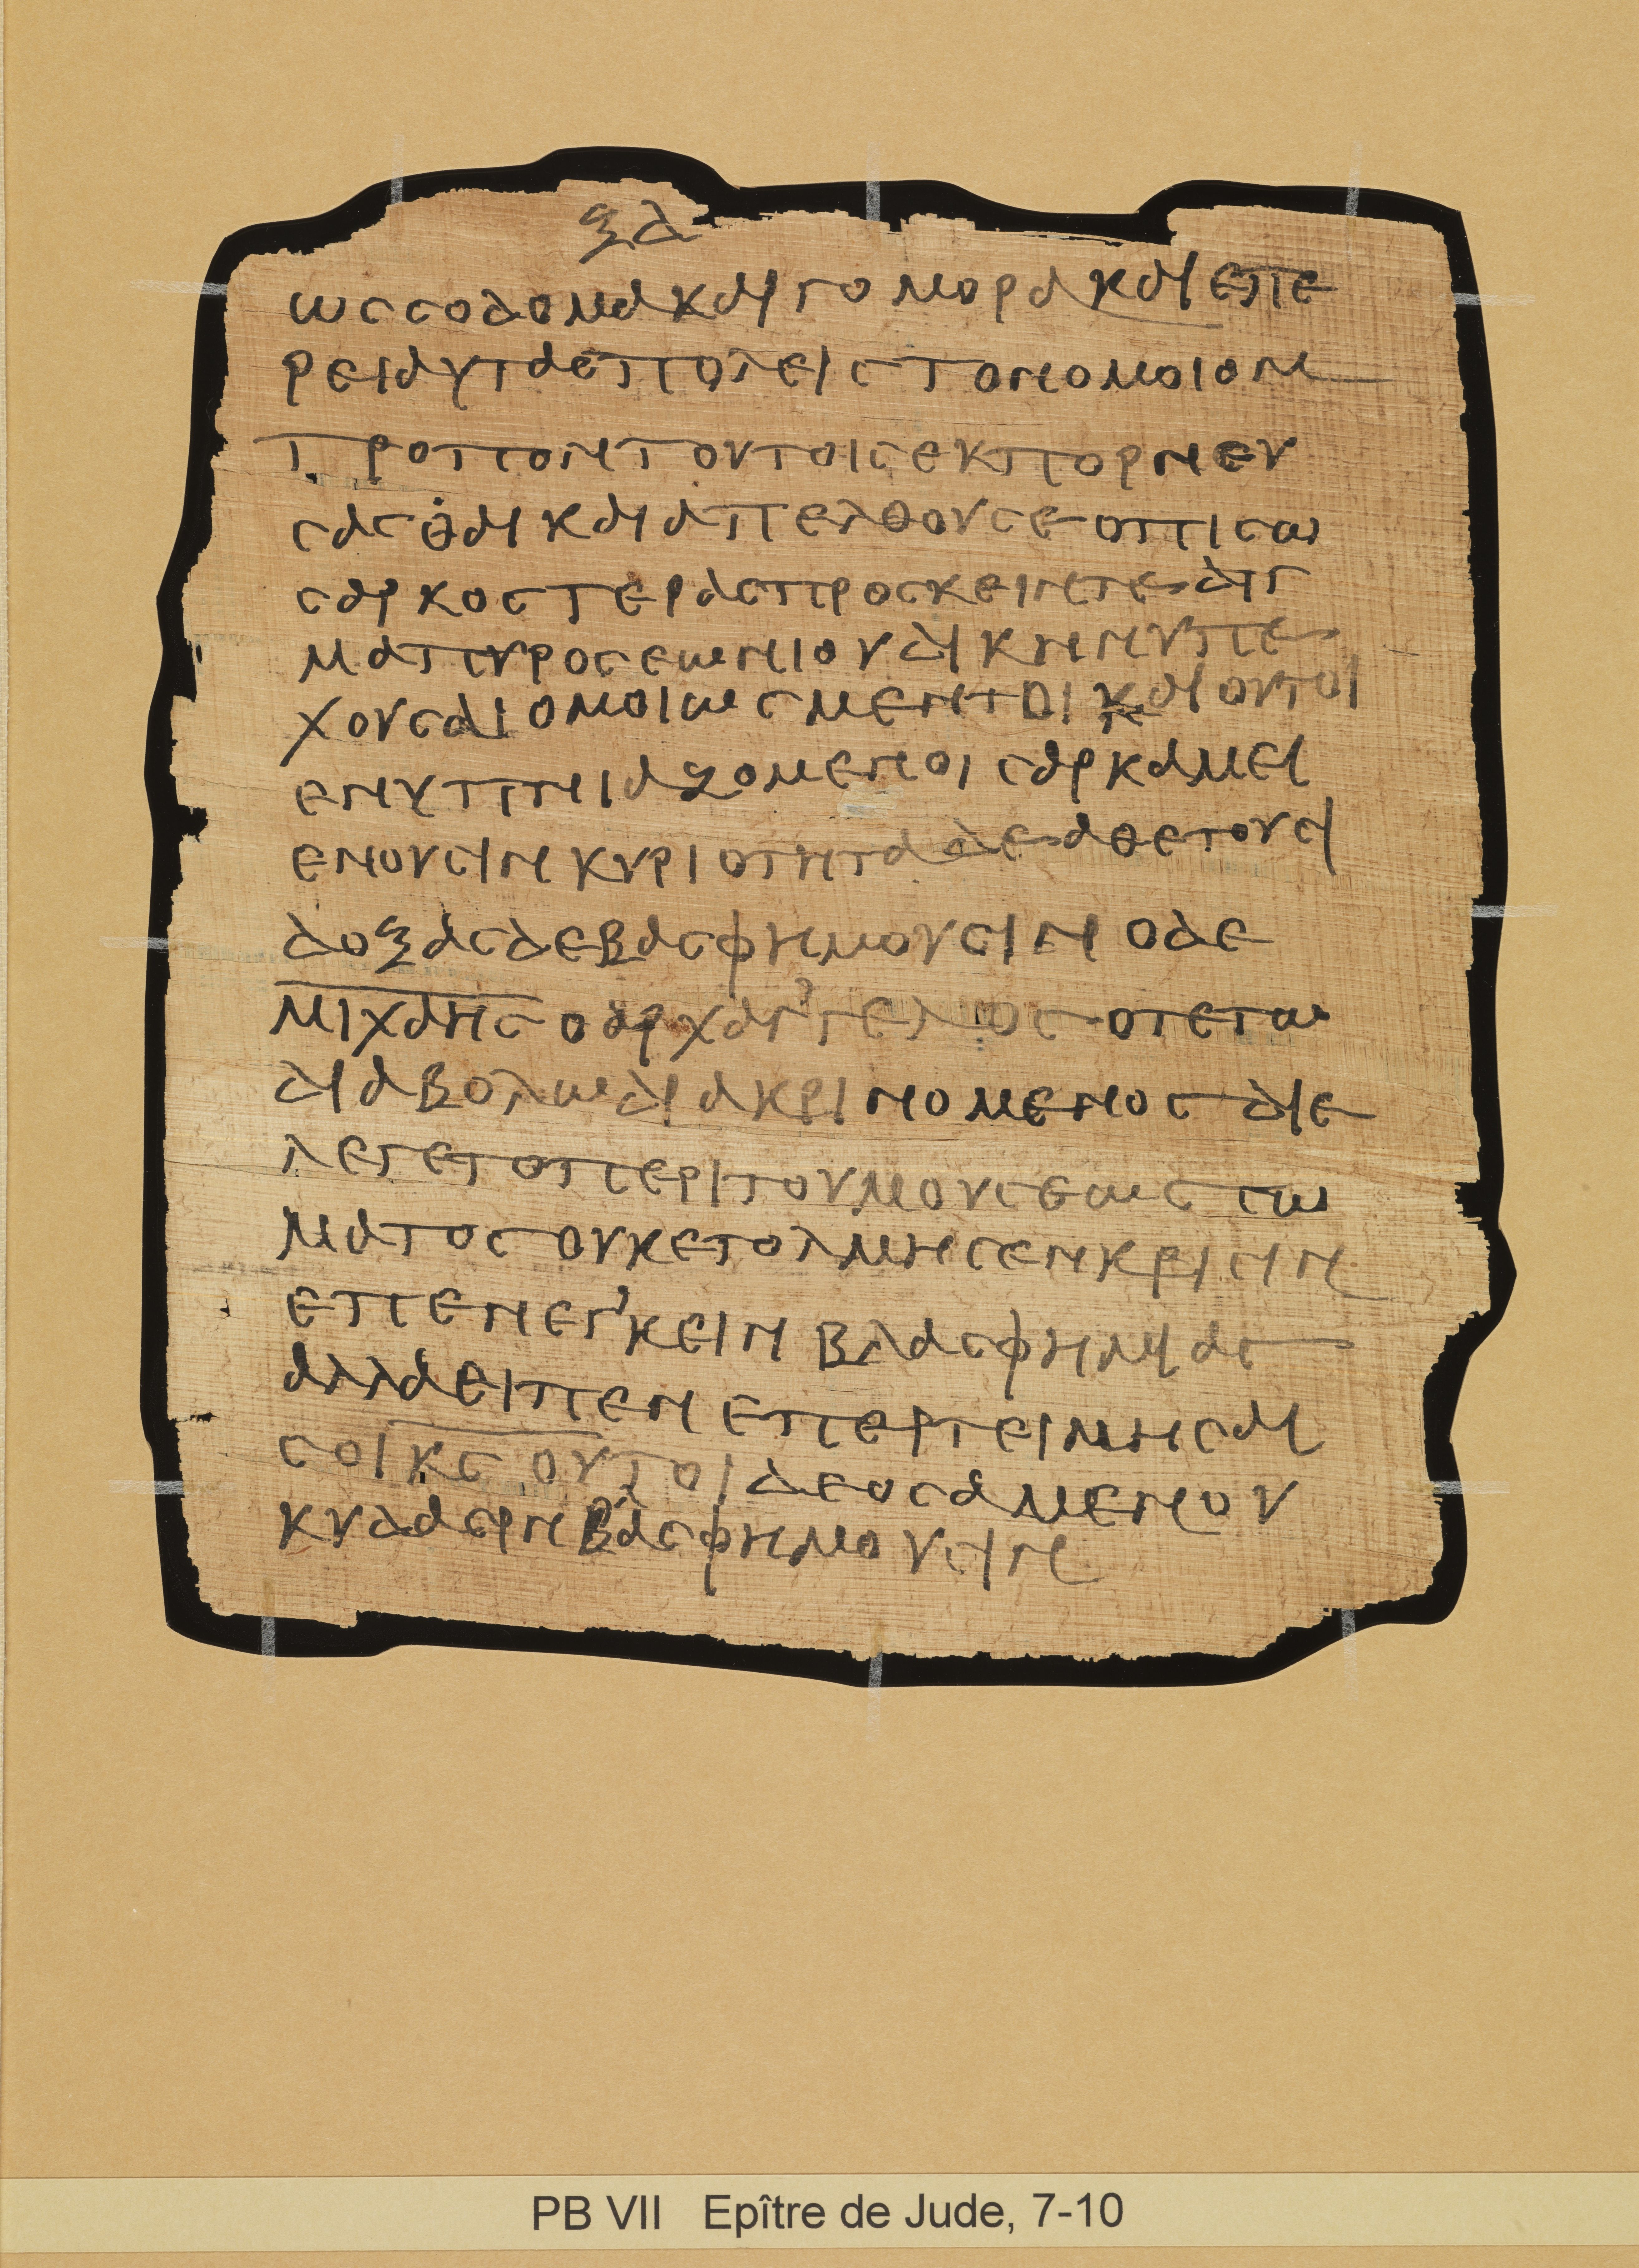 ξδ
ωσσοδομακαιγομορακαιεπε
ρειαυταεπολειστονομοιον
τροποντουτοισεκπορνευ
σασθαικαιαπελθουσεοπισω
σαρκοστερασπροσκειντεδιγ
μαπυροσεωνιουδικηνυπε
χουσαιομοιωσμεντοικαιουτοι
ενυπνιαζομενοισαρκαμει
ενουσινκυριοτηταδεαθετουσι
δοξασδεβασφημουσινοδε
μιχαησοαρχαγ'γελοσοτετω
διαβολωδιακρινομενοσδιε
λεγετοπεριτουμουσεωσσω
ματοσουκετολμησενκρισιν
επενεγ'κεινβλασφημιασ
αλλαειπενεπερτειμησαι
σοικσουτοιδεοσαμενου
κυδασρηνβλασφημουσιν
PB VII Epître de Jude, 7-10